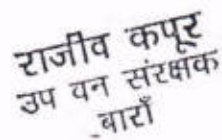 राजीव कपूर
उप वन संरक्षक
बाराँ